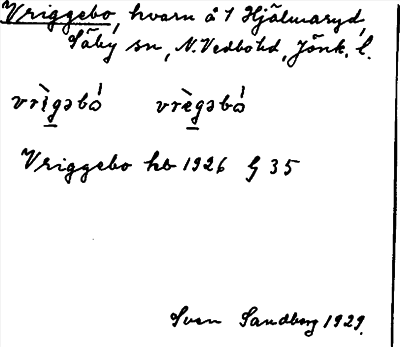 Vriggebo, kvarn å 1 Hjälmaryd,
Säby sn, N. Vedbo hd, Jönk. l.
vrìgəbó vrègəbó
Vriggebo kb 1926 G 35
Sven Sandberg 1929.